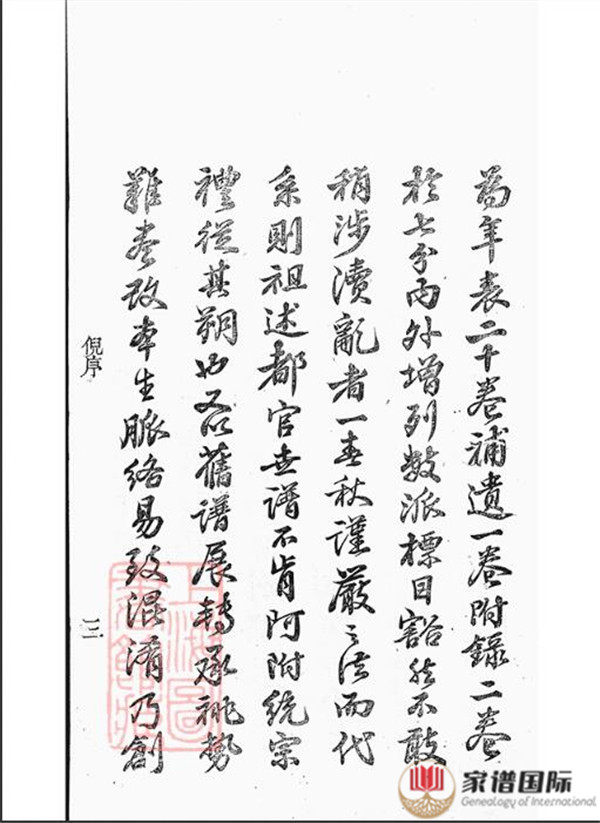 為年表二十卷補遺一卷附錄二卷
於七分內外增列數派標目豁然不敢
稍涉瀆亂者一春秋謹嚴之法而代
系則祖述都官世譜不肯阿附統宗
禮從其朔也又以舊譜展轉承祧勢
難盡改本生脈絡易致混淆乃創
倪序
三
上海圖書館藏
家谱国际
Genealogy of International